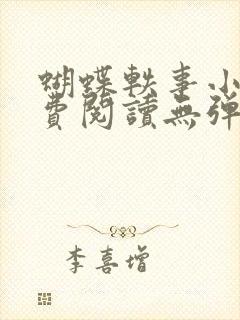 蝴蝶軼事小
費閱讀無彈
李喜增